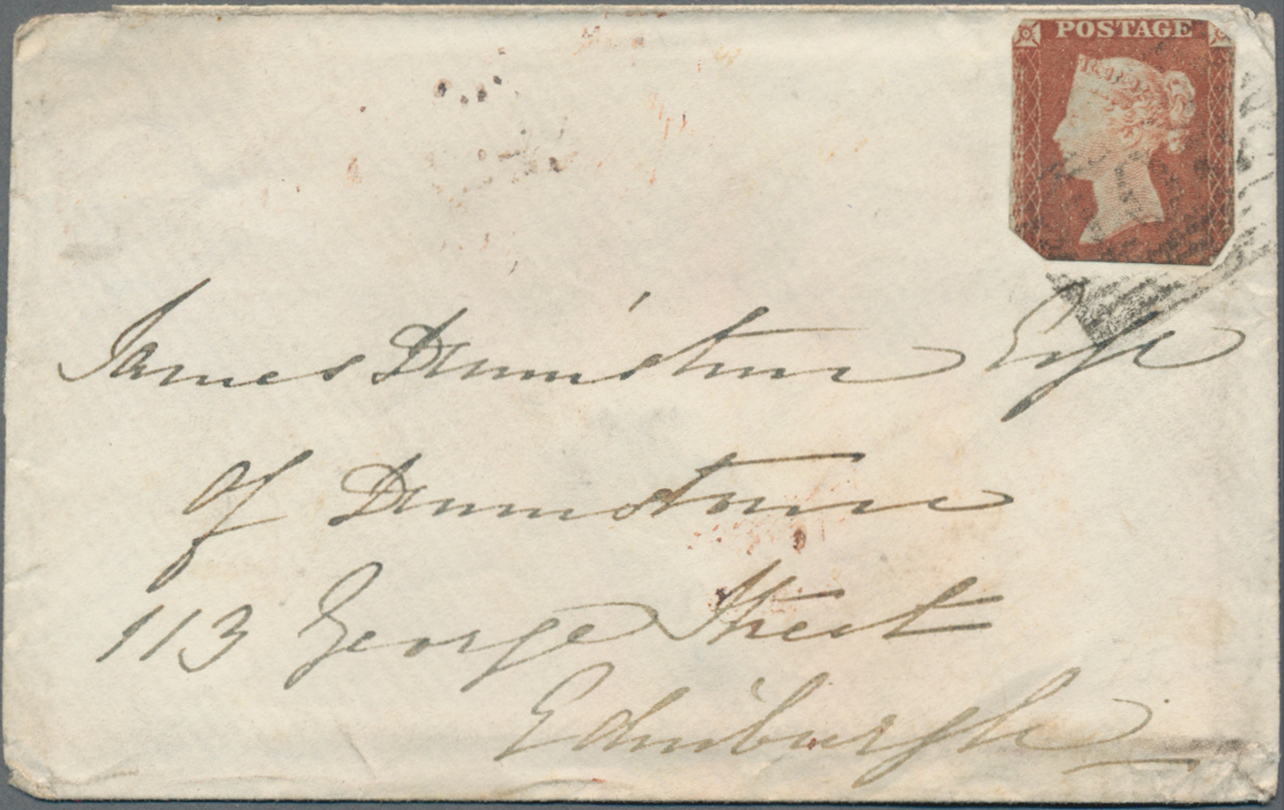 POSTAGE
James Dennistoun Esqe
of Dennistoun
113 George Street
Edinburgh